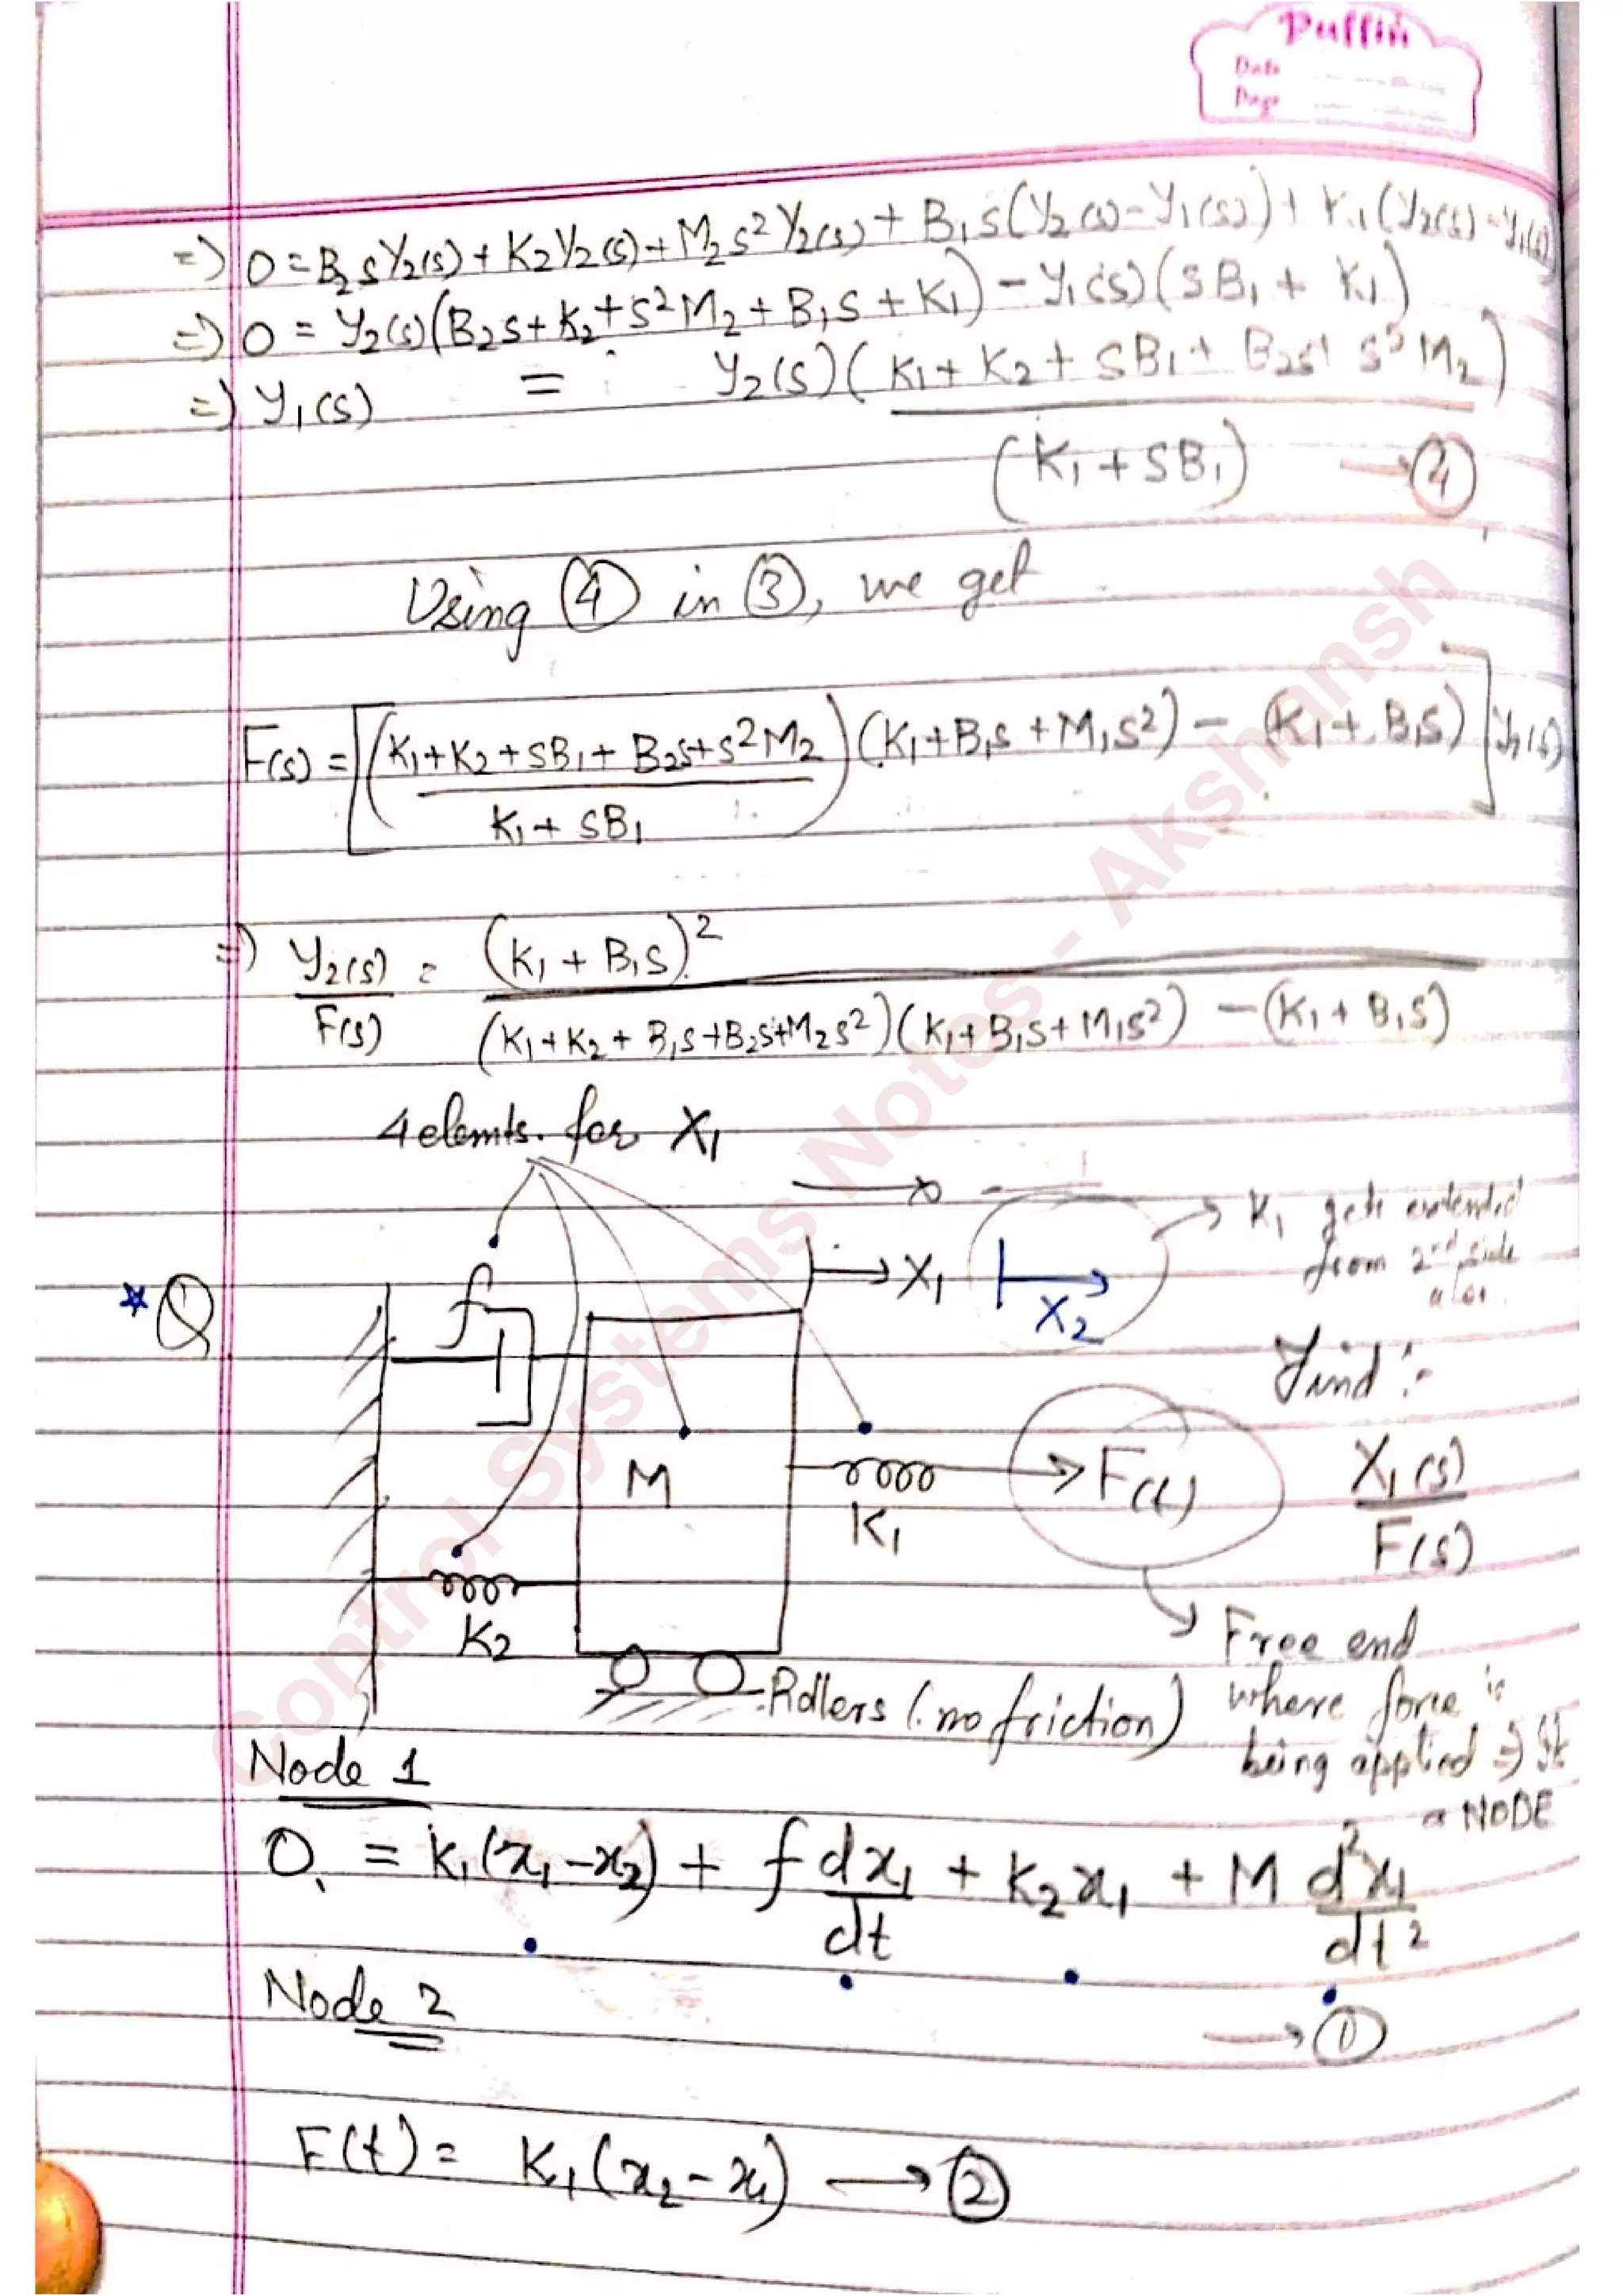 Puffin
Date
Page
=) 0 = B₂sY₂(s) + K₂Y₂(s) + M₂s²Y₂(s) + B₁s(Y₂(s) - Y₁(s)) + K₁(Y₂(s) - Y₁(s))
=) 0 = Y₂(s)(B₂s + K₂ + s²M₂ + B₁s + K₁) - Y₁(s)(sB₁ + K₁)
=) Y₁(s) = Y₂(s)(K₁ + K₂ + sB₁ + B₂s + s²M₂)
(K₁ + SB₁) → ④
Using ④ in ③, we get
F(s) = [((K₁+K₂+sB₁+B₂s+s²M₂)/(K₁+SB₁))(K₁+B₁s+M₁s²) - (K₁+B₁s)] Y₂(s)
=) Y₂(s)/F(s) = (K₁ + B₁s)²
(K₁+K₂+B₁s+B₂s+M₂s²)(K₁+B₁s+M₁s²) - (K₁+B₁s)
4 elemts. for X₁
K₁ gets extended
from 2nd side
also.
X₁
X₂
*Q
f
Find :-
M
K₁
F(t)
X₁(s)
F(s)
K₂
Free end
where force is
being applied => It
a NODE
Rollers (no friction)
Node 1
0 = K₁(x₁-x₂) + f dx₁/dt + K₂x₁ + M d²x₁/dt²
→ ①
Node 2
F(t) = K₁(x₂-x₁) → ②
Control Systems Notes - Akshansh